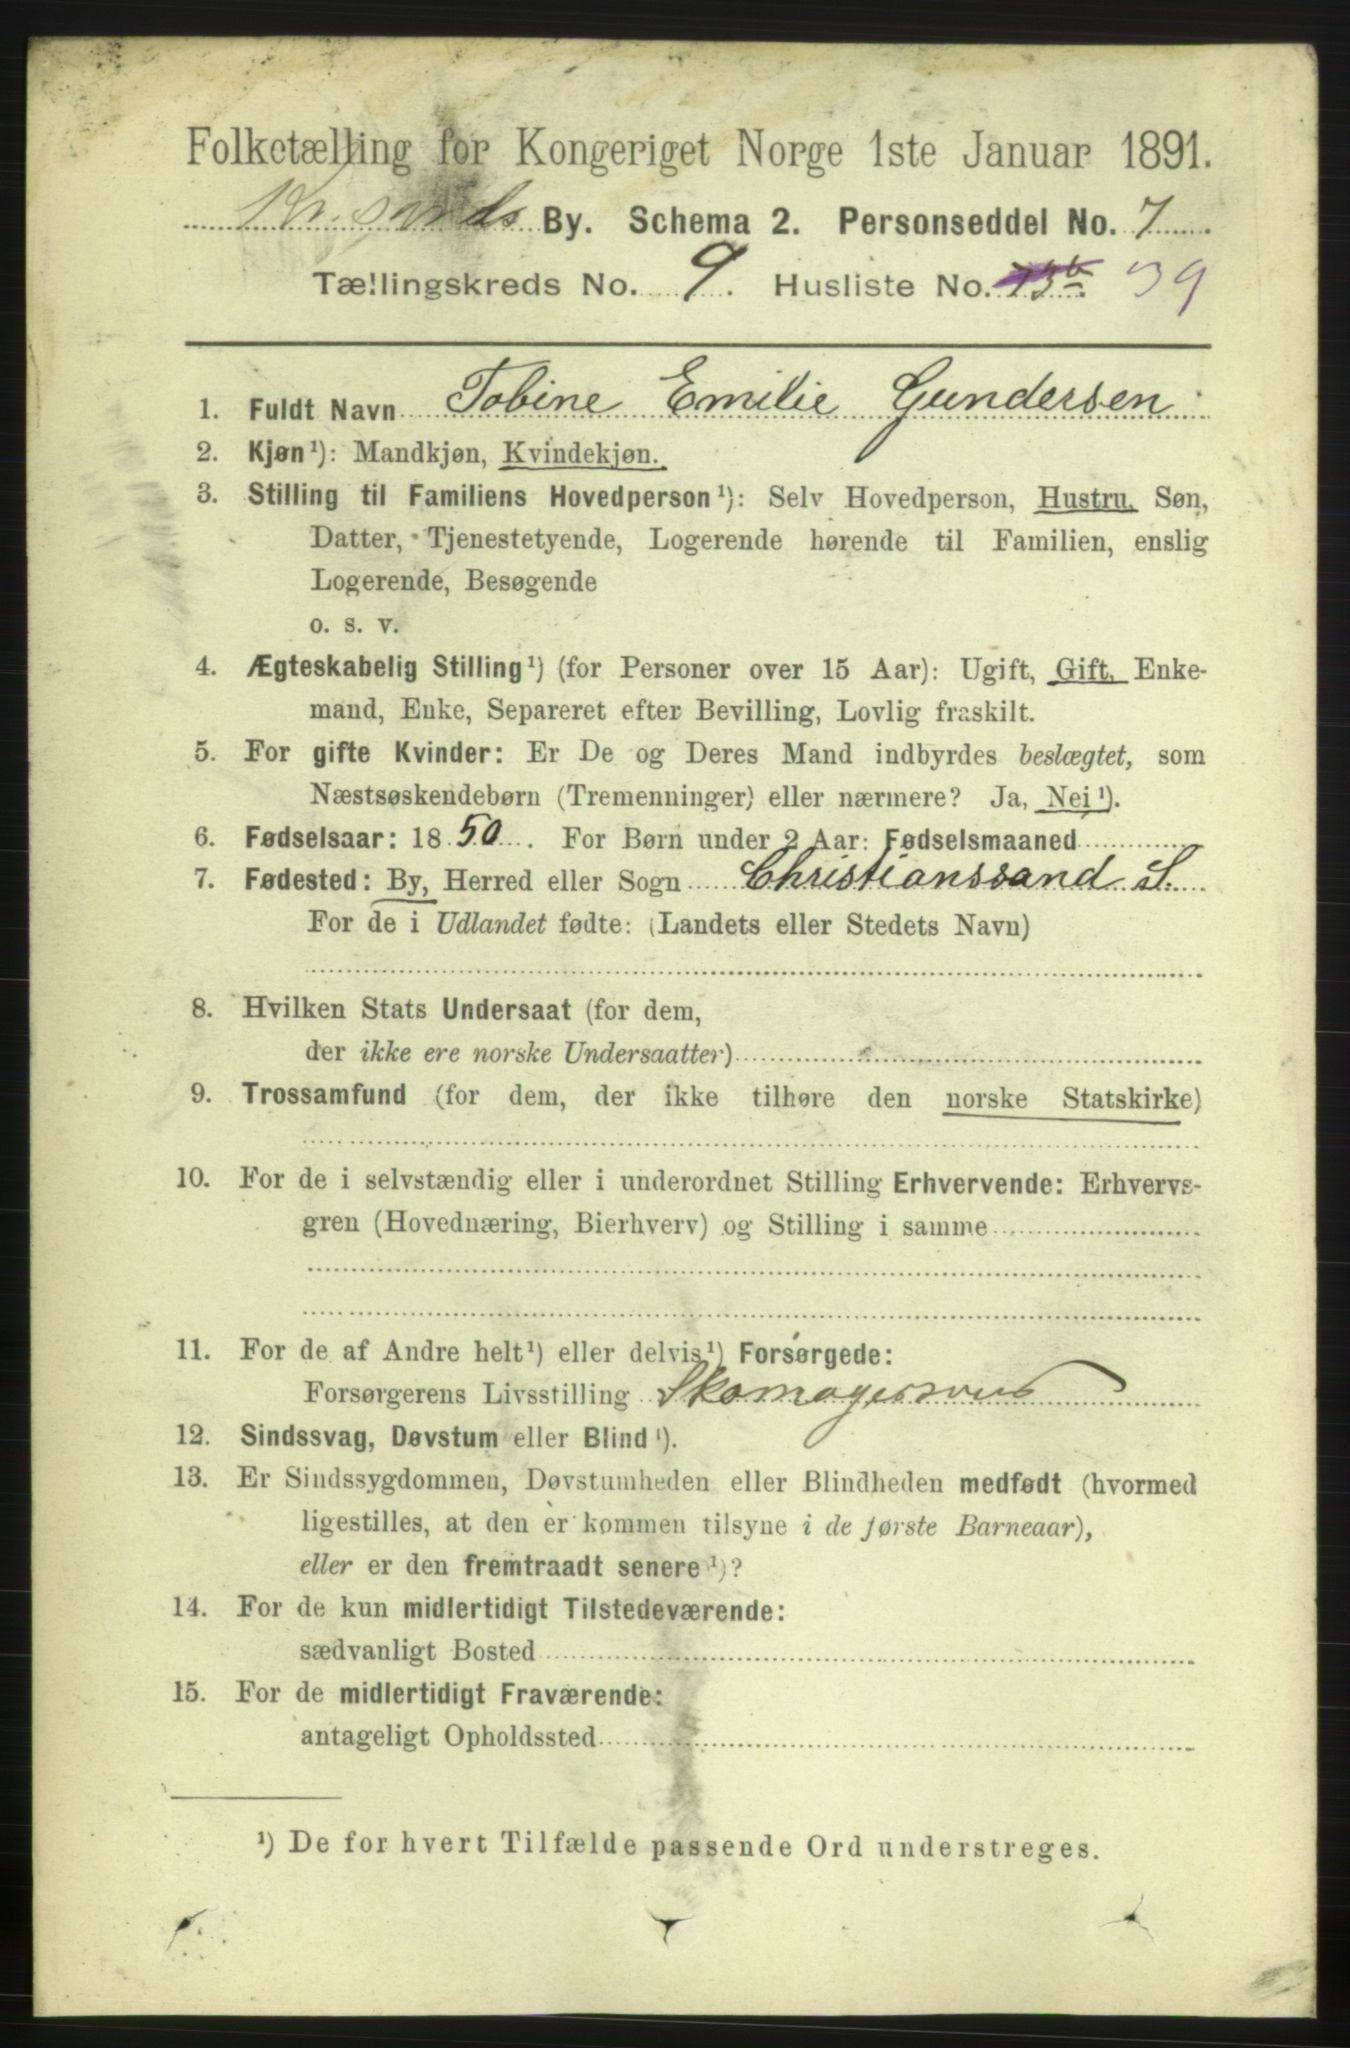 Folketælling for Kongeriget Norge 1ste Januar 1891.
Kr.sands By. Schema 2. Personseddel No. 7
Tællingskreds No. 9. Husliste No. 13b 39
1. Fuldt Navn Tobine Emilie Gundersen
2. Kjøn¹): Mandkjøn, Kvindekjøn.
3. Stilling til Familiens Hovedperson¹): Selv Hovedperson, Hustru, Søn,
Datter, Tjenestetyende, Logerende hørende til Familien, enslig
Logerende, Besøgende
o. s. v.
4. Ægteskabelig Stilling¹) (for Personer over 15 Aar): Ugift, Gift, Enke-
mand, Enke, Separeret efter Bevilling, Lovlig fraskilt.
5. For gifte Kvinder: Er De og Deres Mand indbyrdes beslægtet, som
Næstsøskendebørn (Tremenninger) eller nærmere? Ja, Nei¹).
6. Fødselsaar: 1850. For Børn under 2 Aar: Fødselsmaaned
7. Fødested: By, Herred eller Sogn Christianssand S.
For de i Udlandet fødte: (Landets eller Stedets Navn)
8. Hvilken Stats Undersaat (for dem,
der ikke ere norske Undersaatter)
9. Trossamfund (for dem, der ikke tilhøre den norske Statskirke)
10. For de i selvstændig eller i underordnet Stilling Erhvervende: Erhvervs-
gren (Hovednæring, Bierhverv) og Stilling i samme
11. For de af Andre helt¹) eller delvis¹) Forsørgede:
Forsørgerens Livsstilling Skomagersvend
12. Sindssvag, Døvstum eller Blind¹).
13. Er Sindssygdommen, Døvstumheden eller Blindheden medfødt (hvormed
ligestilles, at den er kommen tilsyne i de første Barneaar),
eller er den fremtraadt senere¹)?
14. For de kun midlertidigt Tilstedeværende:
sædvanligt Bosted
15. For de midlertidigt Fraværende:
antageligt Opholdssted
¹) De for hvert Tilfælde passende Ord understreges.